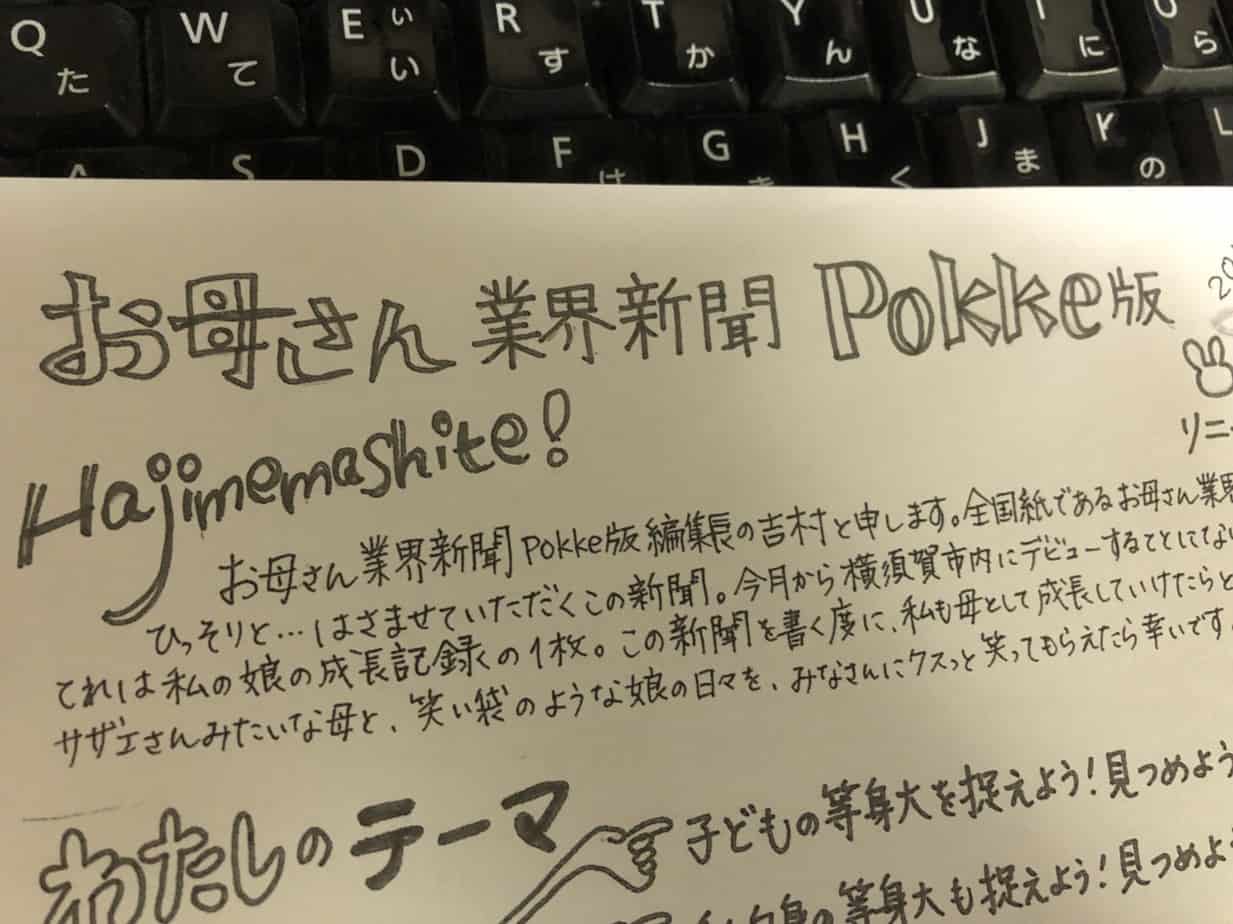 Q W E ぃ R T Y U I O
た て い す か ん な に ら
A S D F G H J K L
は き く ま の
お母さん業界新聞 Pokke版
Hajimemashite!
リニ
お母さん業界新聞Pokke版編集長の吉村と申します。全国紙であるお母さん業界
ひっそりと…はさませていただくこの新聞。今月から横須賀市内にデビューすることにな
これは私の娘の成長記録の1枚。この新聞を書く度に、私も母として成長していけたらと
サザエさんみたいな母と、笑い袋のような娘の日々を、みなさんにクスっと笑ってもらえたら幸いです
わたしのテーマ
子どもの等身大を捉えよう!見つめよう
自身の等身大も捉えよう!見つめよう